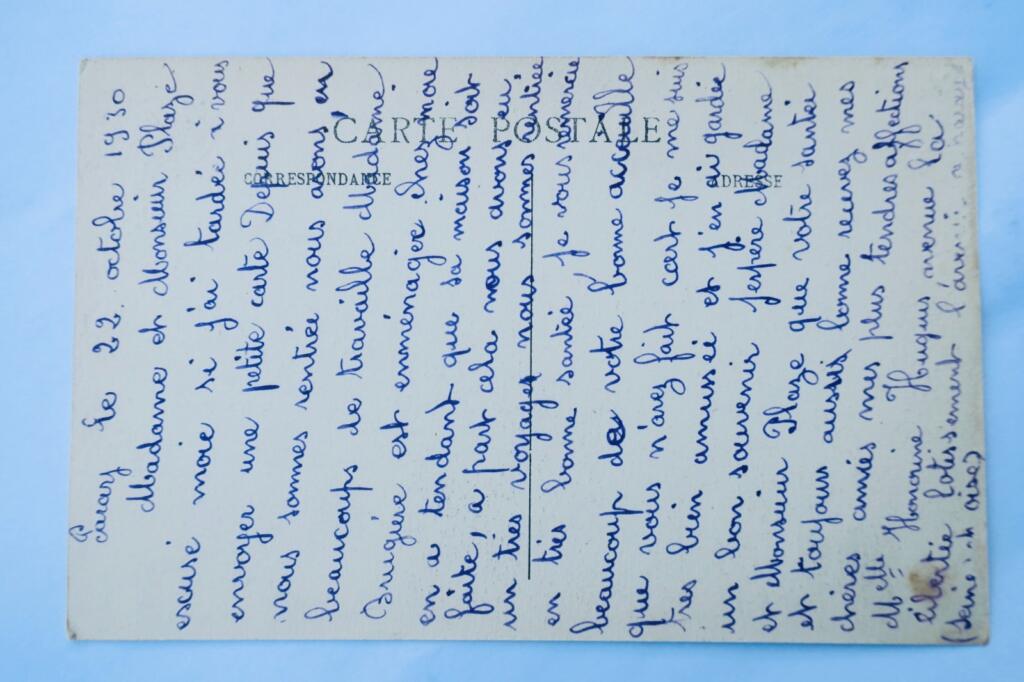 CARTE POSTALE
CORRESPONDANCE
ADRESSE
Paray Le 22. octobre 1930
Madame et Monsieur Plaze
escusé moie si j'ai tardée a vous
envoyer une petite carte Depuis que
nous sommes rentrée nous avons eu
beaucoups de travaille Madame
Brugière est emménager chez moie
en a tendant que sa maison soit
faite, a part cela nous avons eu
un tres voyages nous sommes rentrée
en tres bonne santée, je vous remercie
beaucoup de votre bonne accuelle
que vous n'avez fait cart je me suis
tres bien amussée et j'en ai gardée
un bon souvenir J'espere Madame
et Monsieur Plaze que votre santée
et toujours aussis bonne recevez mes
chères amiés mes plus tendres affections
Melle Honorine Hugus avenue la
liberté lotissement l'arrii a Paray
(Seine et oise)